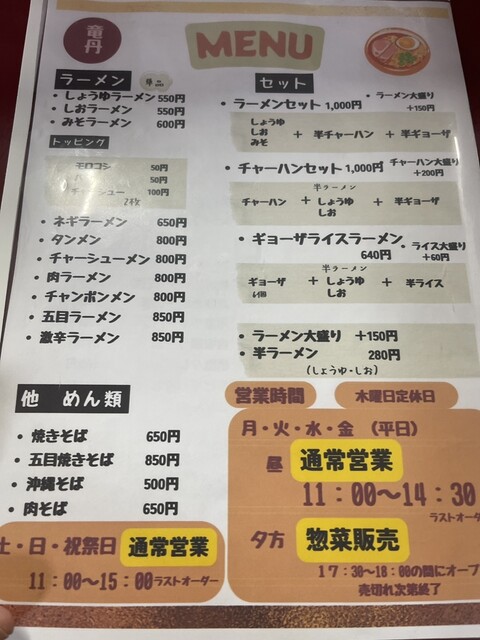 竜丹
MENU
ラーメン
しょうゆラーメン 550円
しおラーメン 550円
みそラーメン 600円
トッピング
モロコシ 50円
50円
チャーシュー 100円
2枚
ネギラーメン 650円
タンメン 800円
チャーシューメン 800円
肉ラーメン 800円
チャンポンメン 800円
五目ラーメン 850円
激辛ラーメン 850円
他 めん類
焼きそば 650円
五目焼きそば 850円
沖縄そば 500円
肉そば 650円
土・日・祝祭日 通常営業
11:00~15:00 ラストオーダー
セット
ラーメンセット 1,000円
ラーメン大盛り
+150円
しょうゆ
しお
みそ
+ 半チャーハン + 半ギョーザ
チャーハンセット 1,000円
チャーハン大盛り
+200円
半ラーメン
チャーハン + しょうゆ + 半ギョーザ
しお
ギョーザライスラーメン
640円
ライス大盛り
+60円
半ラーメン
ギョーザ + しょうゆ + 半ライス
しお
ラーメン大盛り +150円
半ラーメン 280円
(しょうゆ・しお)
営業時間
木曜日定休日
月・火・水・金 (平日)
昼 通常営業
11:00~14:30
ラストオーダ
夕方 惣菜販売
17:30~18:00の間にオープ
売切れ次第終了